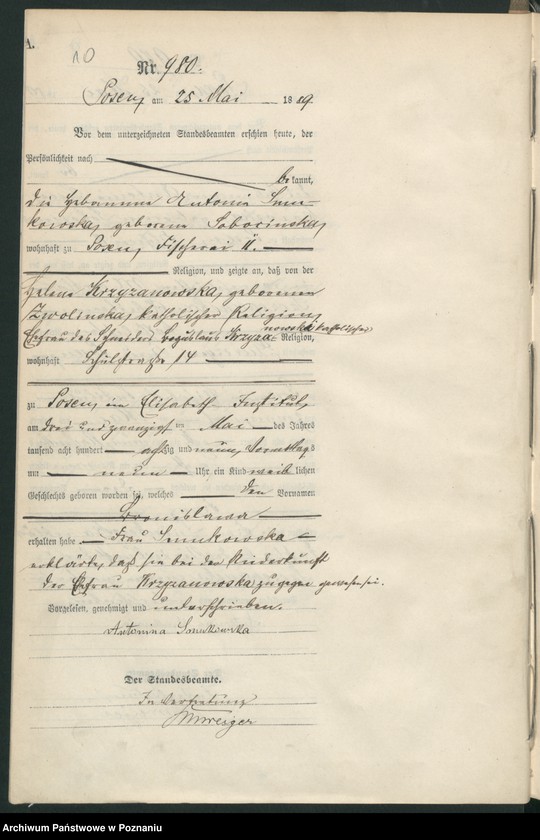 A.
10
Nr. 980.
Posen, am 25 Mai 1889.
Vor dem unterzeichneten Standesbeamten erschien heute, der
Persönlichkeit nach
be kannt,
die Hebamme Antonie
geborene Soborinska,
wohnhaft zu Posen, Fischerei
Religion, und zeigte an, daß von der
Helene Krzyzanowska, geborenen
Zwolinska, katholischer Religion,
Ehefrau des Schneiders Boguslaus Krzyza-nowski katholischer Religion,
wohnhaft Schulstraße 14
zu Posen, im Elisabeth Institut,
am drei und zwanzigsten Mai des Jahres
tausend acht hundert achtzig und neun, Vormittags
um neun Uhr ein Kind weib lichen
Geschlechts geboren worden sei, welches den Vornamen
Bronislawa
erhalten habe. Frau
erklärte, daß sie bei der Niederkunft
der Ehefrau Krzyzanowska zugegen gewesen sei.
Vorgelesen, genehmigt und unterschrieben.
Antonina
Der Standesbeamte.
In Vertretung
Archiwum Państwowe w Poznaniu